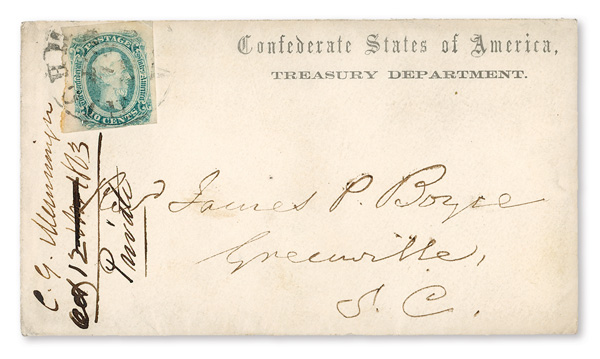 Confederate States of America,
TREASURY DEPARTMENT.
POSTAGE
10 CENTS
Revd James P. Boyce
Greenville,
S. C.
C. G. Memminger
Oct 12
Private